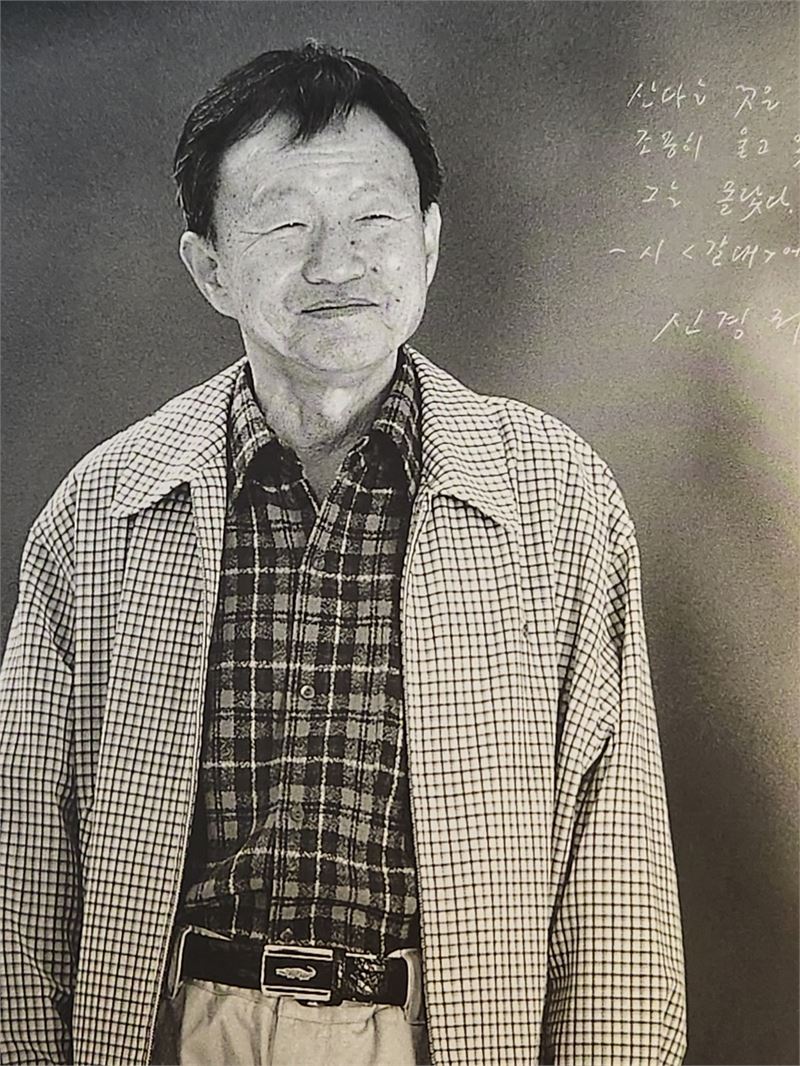 산다는 것은
조용히 울고
그는 몰랐다.
- 시 <갈대>에
신경